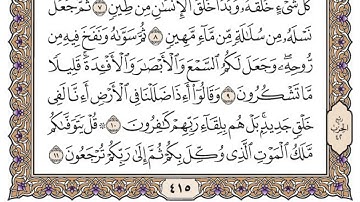 كُلَّ شَىْءٍ خَلَقَهُۥ وَبَدَأَ خَلْقَ ٱلْإِنسَٰنِ مِن طِينٍ ٧ ثُمَّ جَعَلَ
نَسْلَهُۥ مِن سُلَٰلَةٍ مِّن مَّآءٍ مَّهِينٍ ٨ ثُمَّ سَوَّىٰهُ وَنَفَخَ فِيهِ مِن
رُّوحِهِۦ وَجَعَلَ لَكُمُ ٱلسَّمْعَ وَٱلْأَبْصَٰرَ وَٱلْأَفْـِٔدَةَ قَلِيلًا
مَّا تَشْكُرُونَ ٩ وَقَالُوٓا۟ أَءِذَا ضَلَلْنَا فِى ٱلْأَرْضِ أَءِنَّا لَفِى
خَلْقٍ جَدِيدٍۭ بَلْ هُم بِلِقَآءِ رَبِّهِمْ كَٰفِرُونَ ١٠ قُلْ يَتَوَفَّىٰكُم
مَّلَكُ ٱلْمَوْتِ ٱلَّذِى وُكِّلَ بِكُمْ ثُمَّ إِلَىٰ رَبِّكُمْ تُرْجَعُونَ ١١
ربع
الحزب
٤٢
٤١٥